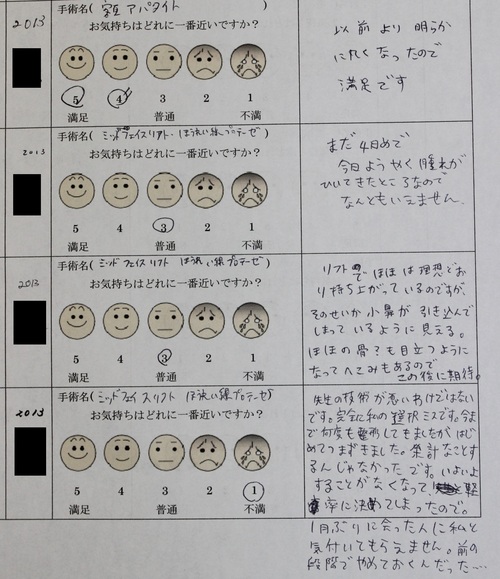 2013
手術名(額アパタイト)
お気持ちはどれに一番近いですか?
5 4 3 2 1
満足 普通 不満
以前より明らか
に丸くなったので
満足です
2013
手術名(ミッドフェイスリフト・ほうれい線プロテーゼ)
お気持ちはどれに一番近いですか?
5 4 3 2 1
満足 普通 不満
まだ4日めで
今日ようやく腫れが
ひいてきたところなので
なんともいえません。
2013
手術名(ミッドフェイスリフト ほうれい線プロテーゼ)
お気持ちはどれに一番近いですか?
5 4 3 2 1
満足 普通 不満
リフトでほほは理想どお
り持ち上がっているのですが、
そのせいか小鼻が引き込んで
しまっているように見える。
ほほの骨?も目立つように
なってへこみもあるので
この後に期待。
2013
手術名(ミッドフェイスリフト ほうれい線プロテーゼ)
お気持ちはどれに一番近いですか?
5 4 3 2 1
満足 普通 不満
先生の技術が悪いわけではない
です。完全に私の選択ミスです。今ま
で何度も整形してきましたがはじ
めてつまずきました。余計なことす
るんじゃなかったです。いよいよ
することがなくなって軽
率に決めてしまったので。
1月ぶりに会った人に私と
気付いてもらえません。前の
段階でやめておくんだった…